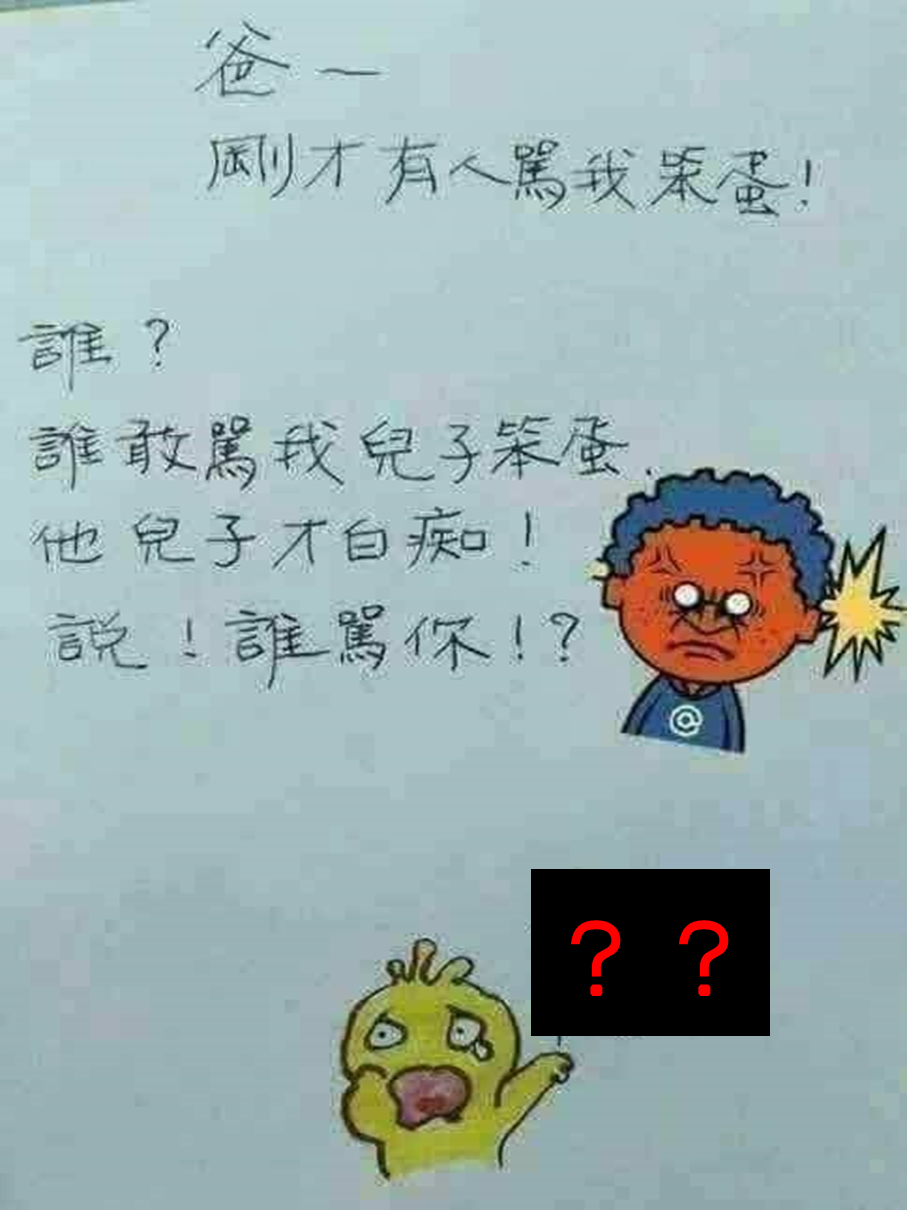 爸一
剛才有人罵我笨蛋!
誰?
誰敢罵我兒子笨蛋.
他兒子才白痴!
説!誰罵你!?
@
? ?